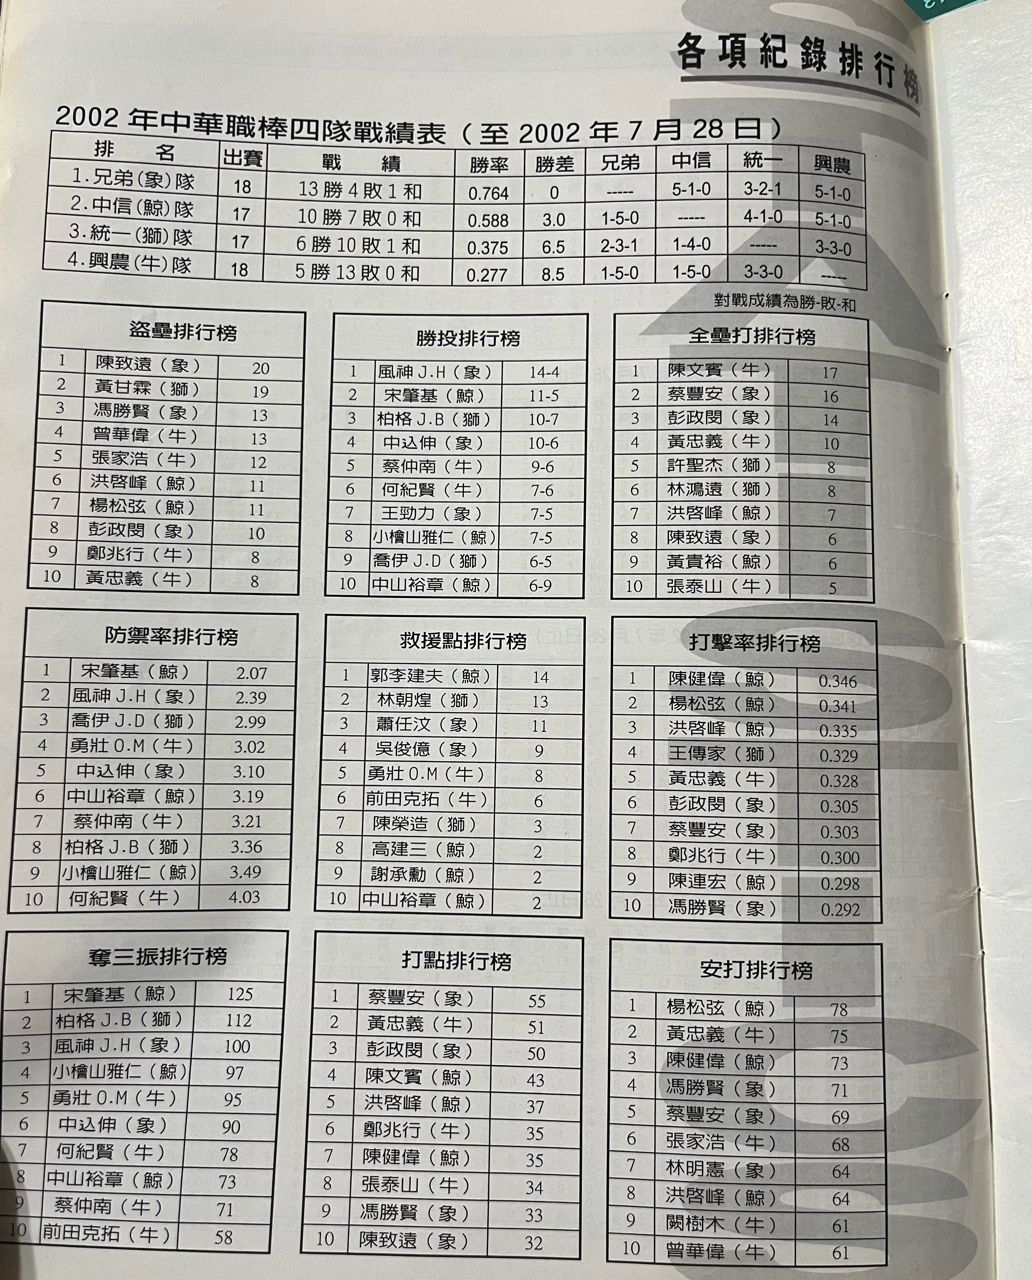 各項紀錄排行榜
2002年中華職棒四隊戰績表（至2002年7月28日）
排 名 出賽 戰 績 勝率 勝差 兄弟 中信 統一 興農
1.兄弟(象)隊 18 13勝4敗1和 0.764 0 ----- 5-1-0 3-2-1 5-1-0
2.中信(鯨)隊 17 10勝7敗0和 0.588 3.0 1-5-0 ----- 4-1-0 5-1-0
3.統一(獅)隊 17 6勝10敗1和 0.375 6.5 2-3-1 1-4-0 ----- 3-3-0
4.興農(牛)隊 18 5勝13敗0和 0.277 8.5 1-5-0 1-5-0 3-3-0 -----
對戰成績為勝-敗-和
盜壘排行榜
1 陳致遠（象） 20
2 黃甘霖（獅） 19
3 馮勝賢（象） 13
4 曾華偉（牛） 13
5 張家浩（牛） 12
6 洪啓峰（鯨） 11
7 楊松弦（鯨） 11
8 彭政閔（象） 10
9 鄭兆行（牛） 8
10 黃忠義（牛） 8
勝投排行榜
1 風神J.H（象） 14-4
2 宋肇基（鯨） 11-5
3 柏格J.B（獅） 10-7
4 中込伸（象） 10-6
5 蔡仲南（牛） 9-6
6 何紀賢（牛） 7-6
7 王勁力（象） 7-5
8 小檜山雅仁（鯨） 7-5
9 喬伊J.D（獅） 6-5
10 中山裕章（鯨） 6-9
全壘打排行榜
1 陳文賓（牛） 17
2 蔡豐安（象） 16
3 彭政閔（象） 14
4 黃忠義（牛） 10
5 許聖杰（獅） 8
6 林鴻遠（獅） 8
7 洪啓峰（鯨） 7
8 陳致遠（象） 6
9 黃貴裕（鯨） 6
10 張泰山（牛） 5
防禦率排行榜
1 宋肇基（鯨） 2.07
2 風神J.H（象） 2.39
3 喬伊J.D（獅） 2.99
4 勇壯O.M（牛） 3.02
5 中込伸（象） 3.10
6 中山裕章（鯨） 3.19
7 蔡仲南（牛） 3.21
8 柏格J.B（獅） 3.36
9 小檜山雅仁（鯨） 3.49
10 何紀賢（牛） 4.03
救援點排行榜
1 郭李建夫（鯨） 14
2 林朝煌（獅） 13
3 蕭任汶（象） 11
4 吳俊億（象） 9
5 勇壯O.M（牛） 8
6 前田克拓（牛） 6
7 陳榮造（獅） 3
8 高建三（鯨） 2
9 謝承勳（鯨） 2
10 中山裕章（鯨） 2
打擊率排行榜
1 陳健偉（鯨） 0.346
2 楊松弦（鯨） 0.341
3 洪啓峰（鯨） 0.335
4 王傳家（獅） 0.329
5 黃忠義（牛） 0.328
6 彭政閔（象） 0.305
7 蔡豐安（象） 0.303
8 鄭兆行（牛） 0.300
9 陳連宏（鯨） 0.298
10 馮勝賢（象） 0.292
奪三振排行榜
1 宋肇基（鯨） 125
2 柏格J.B（獅） 112
3 風神J.H（象） 100
4 小檜山雅仁（鯨） 97
5 勇壯O.M（牛） 95
6 中込伸（象） 90
7 何紀賢（牛） 78
8 中山裕章（鯨） 73
9 蔡仲南（牛） 71
10 前田克拓（牛） 58
打點排行榜
1 蔡豐安（象） 55
2 黃忠義（牛） 51
3 彭政閔（象） 50
4 陳文賓（鯨） 43
5 洪啓峰（鯨） 37
6 鄭兆行（牛） 35
7 陳健偉（鯨） 35
8 張泰山（牛） 34
9 馮勝賢（象） 33
10 陳致遠（象） 32
安打排行榜
1 楊松弦（鯨） 78
2 黃忠義（牛） 75
3 陳健偉（鯨） 73
4 馮勝賢（象） 71
5 蔡豐安（象） 69
6 張家浩（牛） 68
7 林明憲（象） 64
8 洪啓峰（鯨） 64
9 闕樹木（牛） 61
10 曾華偉（牛） 61